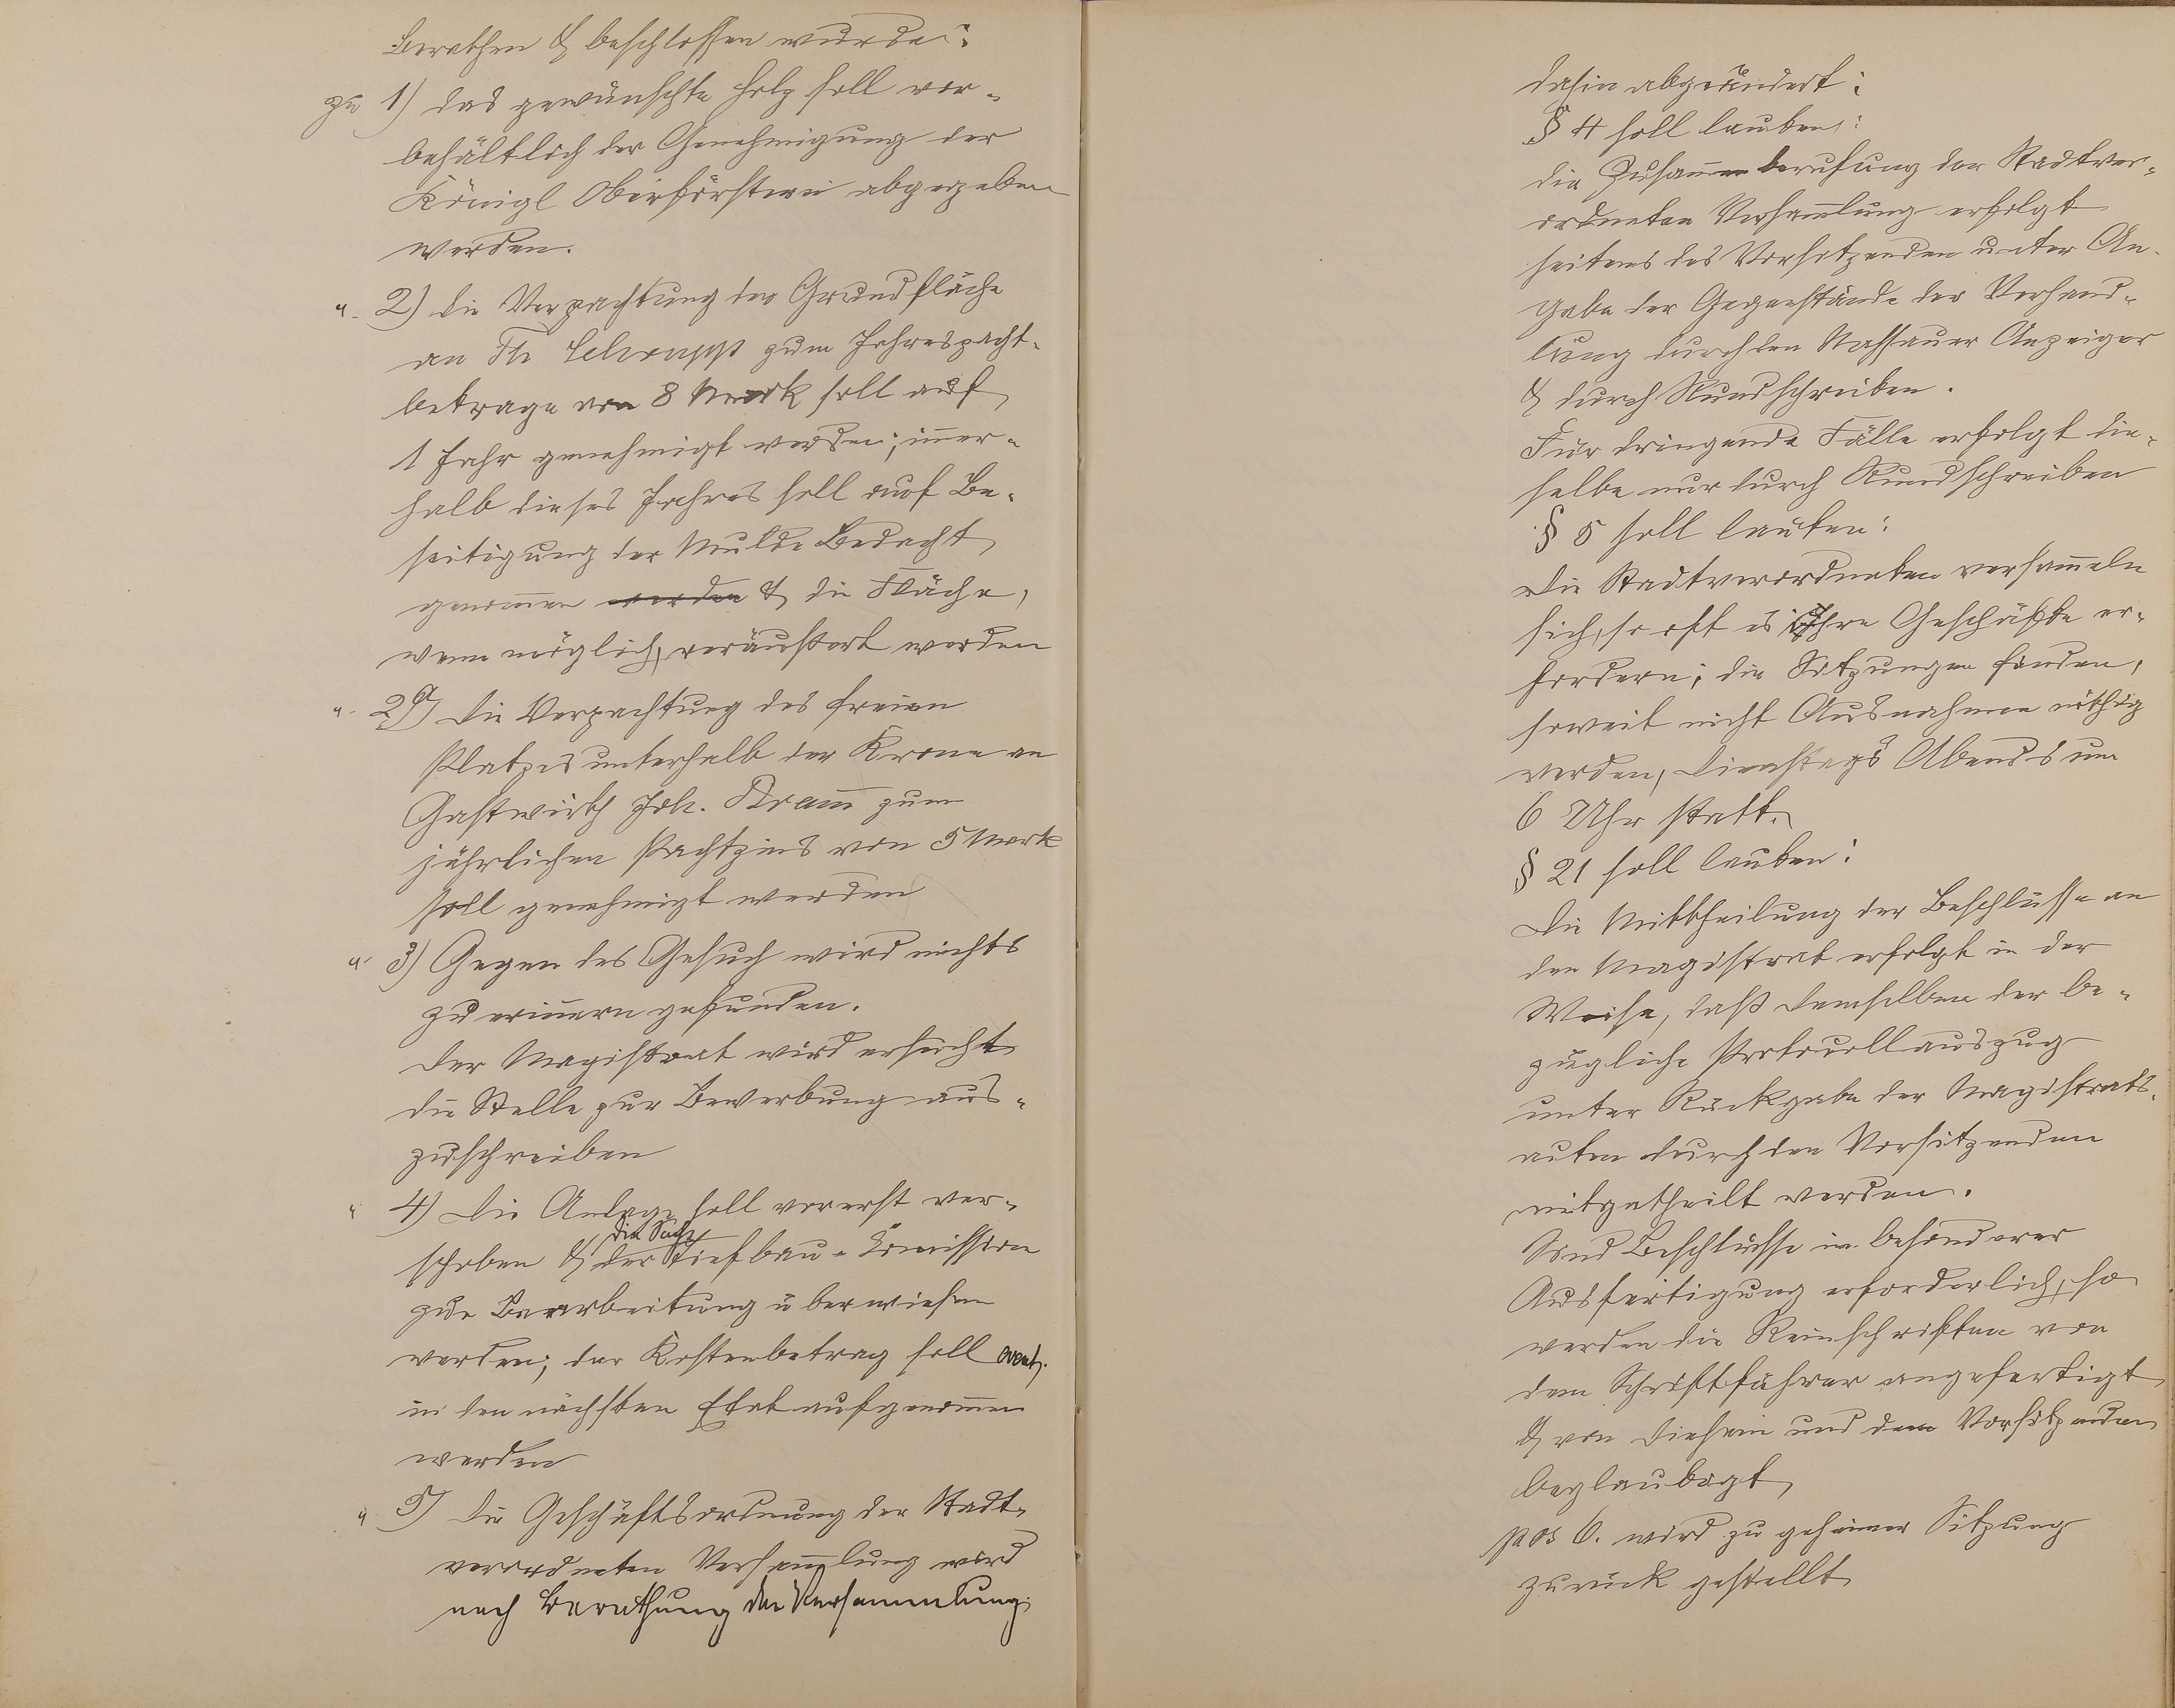 Berathen & beschlossen wurde:
zu 1) das gewünschte Holz soll vor-
behältlich der Genehmigung der
Königl Oberförsterei abgegeben
werden.
" 2) die Verpachtung der Grundfläche
an Th Schrupp zum Jahrespacht-
betrage von 8 Mark soll auf
1 Jahr genehmigt werden; inner-
halb dieses Jahres soll auf Be-
seitigung der Mulde Bedacht
genom̄en werden & die Fläche,
wenn möglich, veräußert werden
" 2a) die Verpachtung des freien
Platzes unterhalb der Krone an
Gastwirth Joh. Bram̄ zum
jährlichen Pachtzins von 5 Mark
soll genehmigt werden
" 3) Gegen das Gesuch wird nichts
zu erin̄ern gefunden.
der Magistrat wird ersucht
die Stelle zur Bewerbung aus-
zuschreiben
" 4) die Anlage soll vorerst ver-
schoben & die Sache der Tiefbau-Com̄ission
zur Bearbeitung überwiesen
werden; der Kostenbetrag soll event.
in den nächsten Etat aufgenom̄en
werden
" 5) die Geschäftsordnung der Stadt-
verordneten Versam̄lung wird
nach Berathung der Versammlung
dahin abgeändert:
§ 4 soll lauten:
die Zusam̄enberufung der Stadtver-
ordneten Versam̄lung erfolgt
seitens des Vorsitzenden unter An-
gabe der Gegenstände der Verhand-
lung durch den Nassauer Anzeiger
& durch Rundschreiben.
Für dringende Fälle erfolgt die-
selbe nur durch Rundschreiben
§ 5 soll lauten:
die Stadtverordneten versam̄eln
sich, so oft es Ihre Geschäfte er-
fordern; die Sitzungen finden,
soweit nicht Ausnahmen nöthig
werden, Dienstags Abends um
6 Uhr statt.
§ 21 soll lauten:
die Mittheilung der Beschlüsse an
den Magistrat erfolgt in der
Weise, daß demselben der be-
zügliche Protocollauszug
unter Rückgabe der Magistrats-
acten durch den Vorsitzenden
mitgetheilt werden.
Sind Beschlüsse in besonderer
Ausfertigung erforderlich, so
werden die Reinschriften von
dem Schriftführer angefertigt
& von diesem und dem Vorsitzenden
beglaubigt
pos 6. wird zu geheimer Sitzung
zurück gestellt